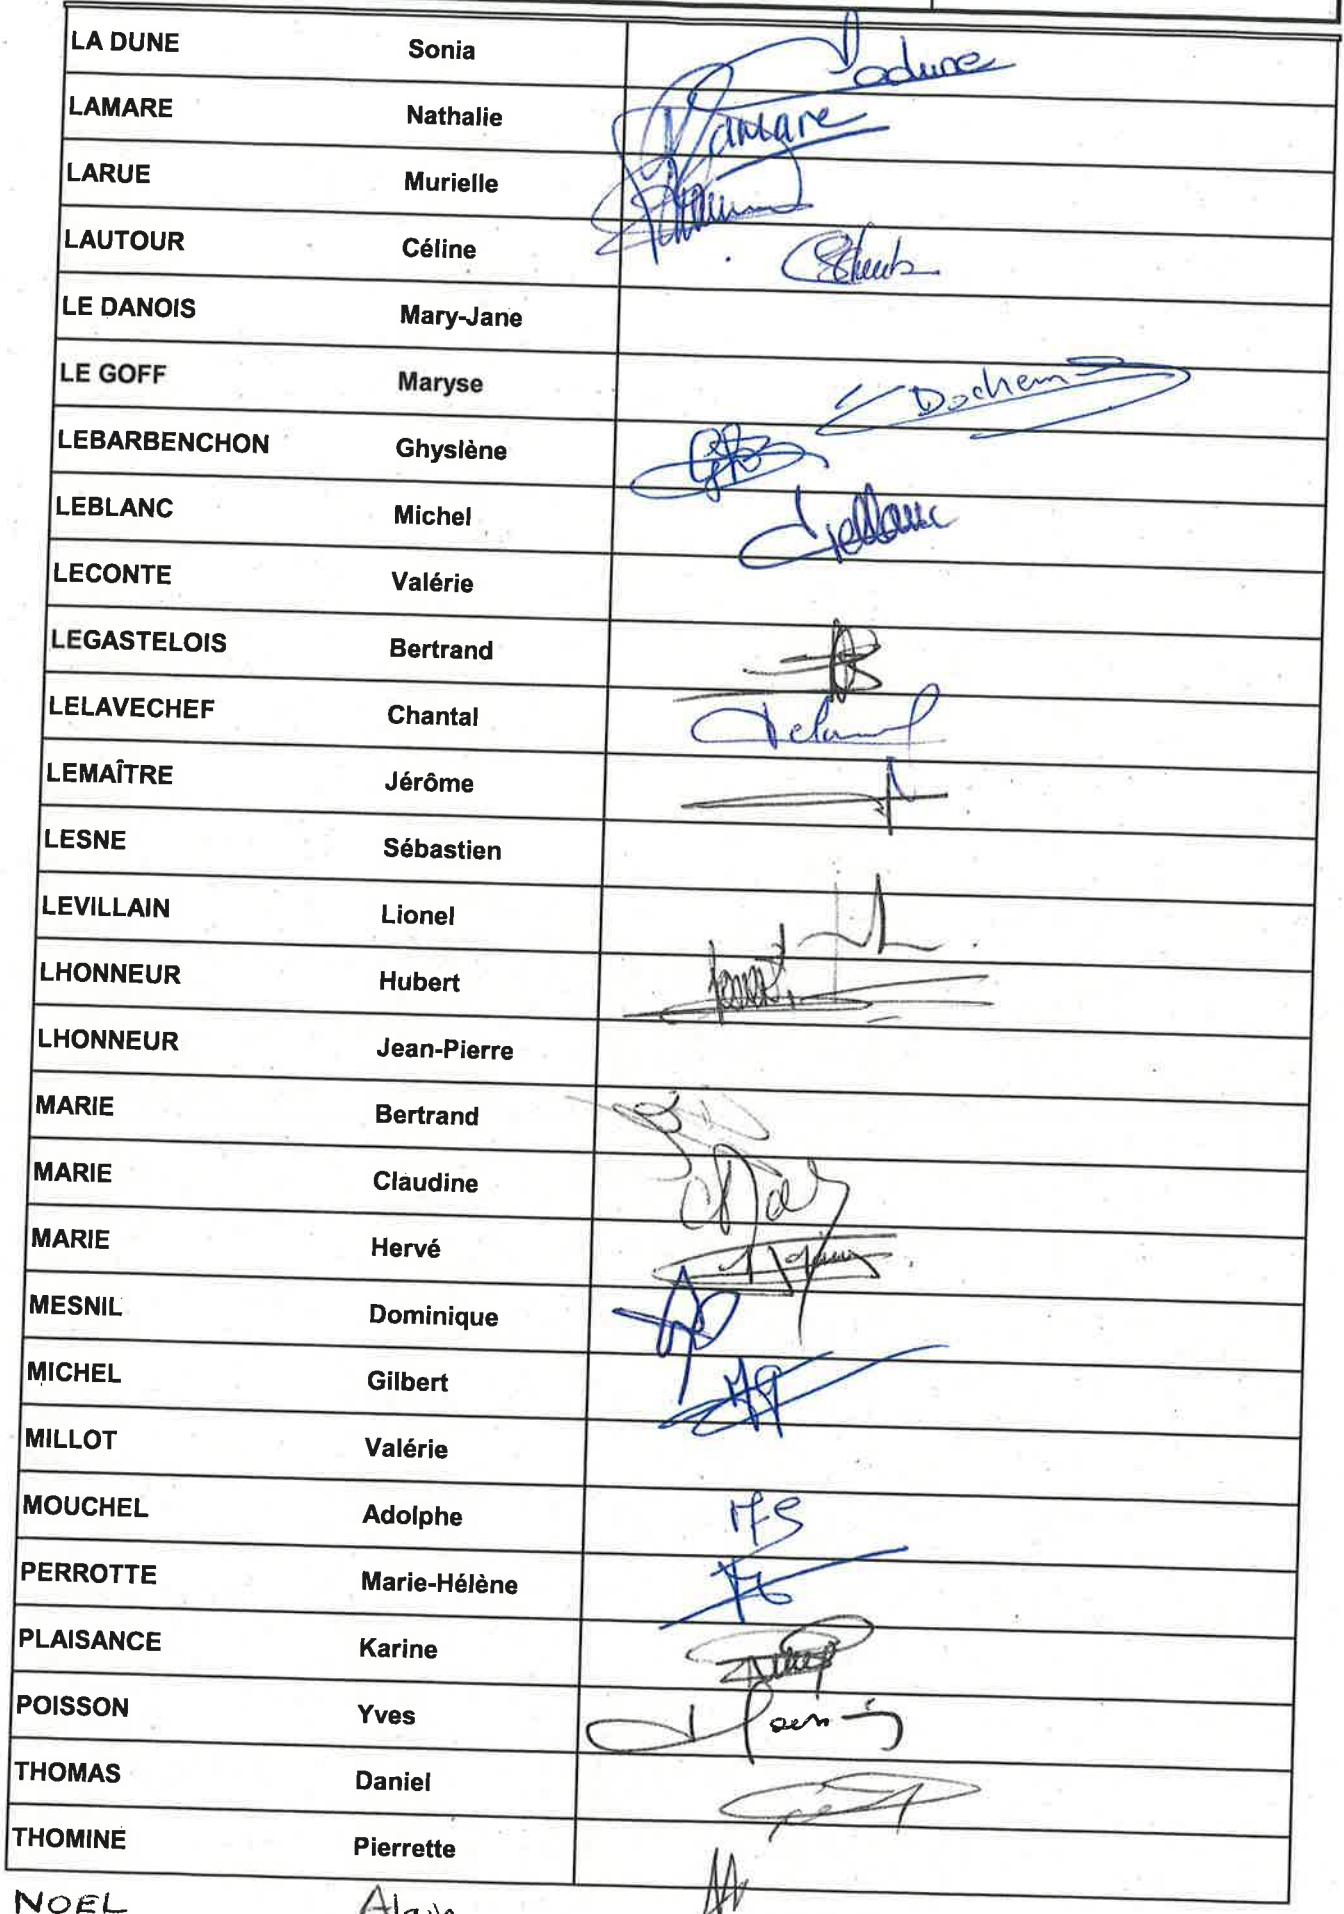 LA DUNE Sonia Ladune
LAMARE Nathalie Lamare
LARUE Murielle
LAUTOUR Céline
LE DANOIS Mary-Jane
LE GOFF Maryse
LEBARBENCHON Ghyslène
LEBLANC Michel Leblanc
LECONTE Valérie
LEGASTELOIS Bertrand
LELAVECHEF Chantal
LEMAÎTRE Jérôme
LESNE Sébastien
LEVILLAIN Lionel
LHONNEUR Hubert
LHONNEUR Jean-Pierre
MARIE Bertrand
MARIE Claudine
MARIE Hervé
MESNIL Dominique
MICHEL Gilbert
MILLOT Valérie
MOUCHEL Adolphe
PERROTTE Marie-Hélène
PLAISANCE Karine
POISSON Yves
THOMAS Daniel
THOMINE Pierrette
NOEL Alain